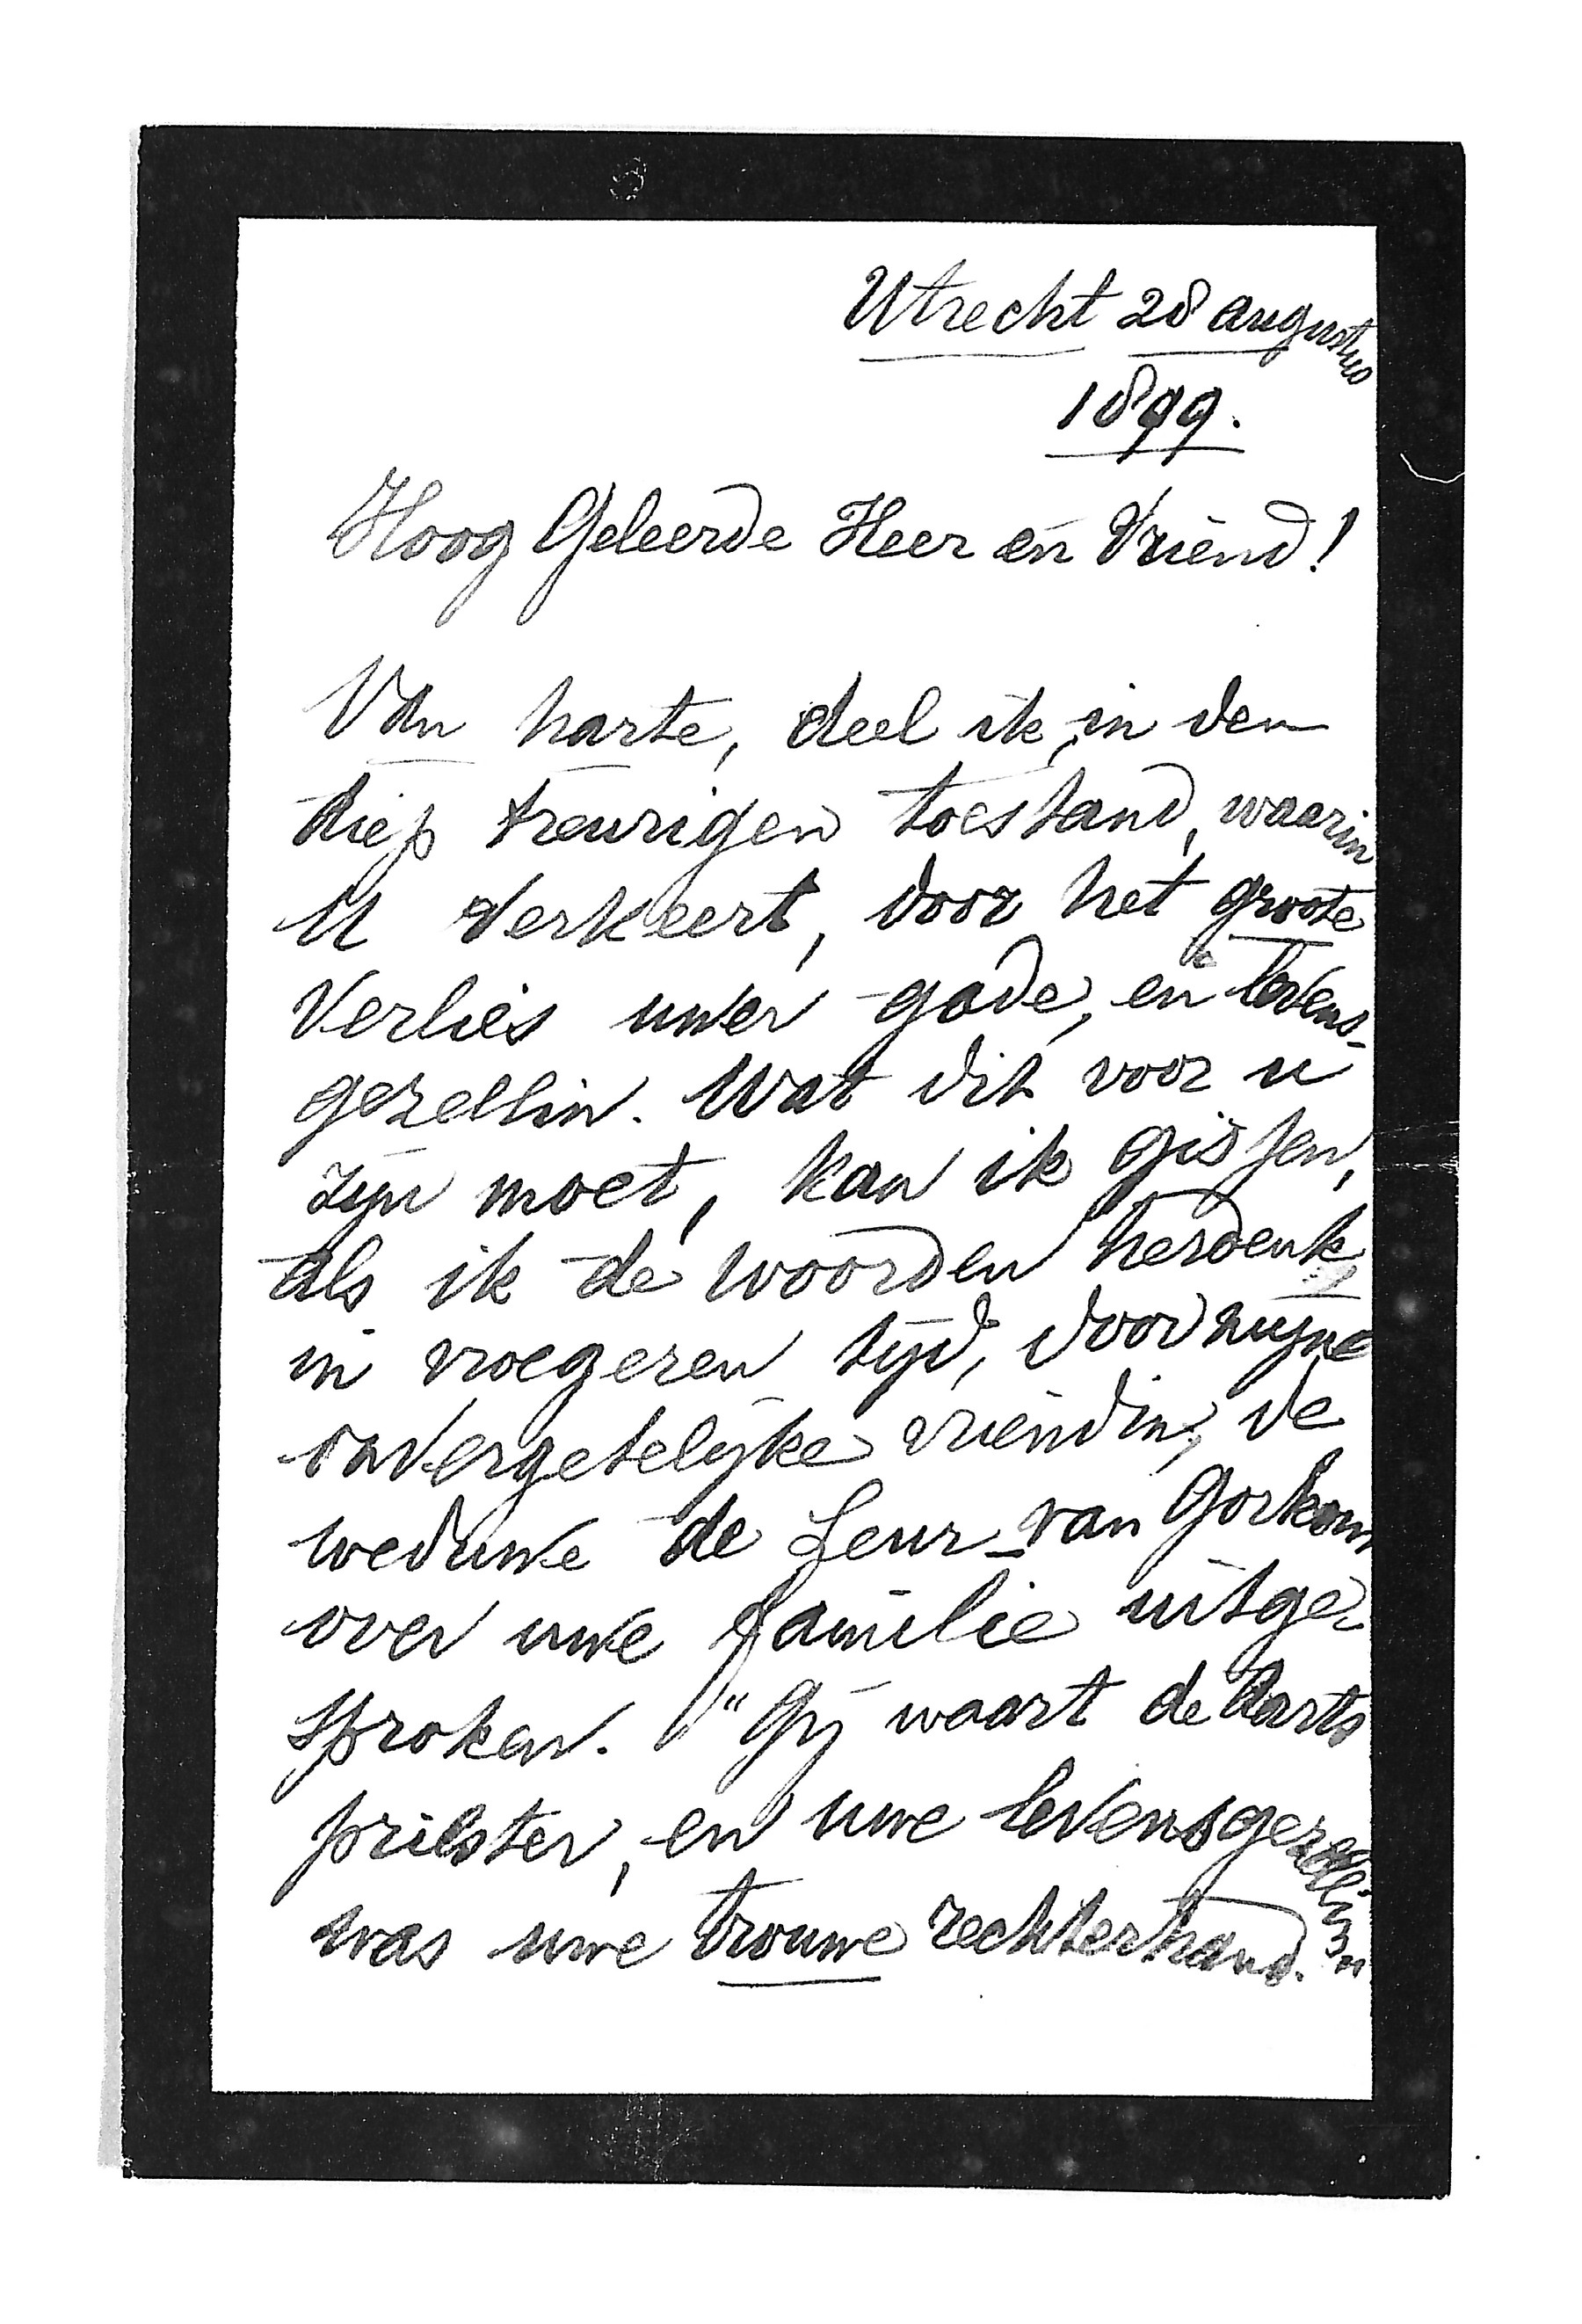 Utrecht 28 augustus
1899.
Hoog Geleerde Heer en Vriend!
Van harte, deel ik, in den
diep treurigen toestand, waarin
U verkeert, door het groote
Verlies uwer gade, en levens-
gezellin. Wat dit voor u
zijn moet, kan ik gissen,
als ik de woorden herdenk,
in vroegeren tijd, door mijne
onvergetelijke vriendin, de
weduwe de Leur-van Gorkom
over uwe familie uitge-
sproken. "Gij waart de Aarts
priester, en uwe levensgezellin
was uwe trouwe rechterhand."